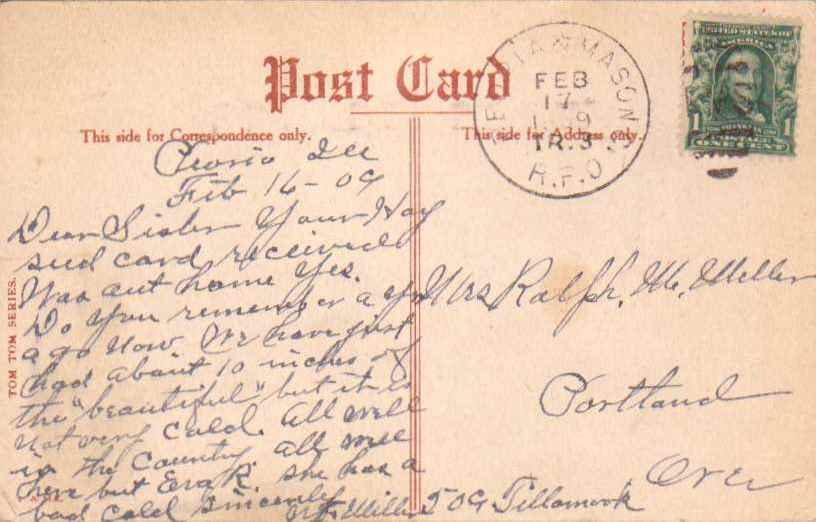 Post Card
This side for Correspondence only.
This side for Address only.
& MASON
FEB
17
TR.3
R.P.O.
UNITED STATES OF
AMERICA
1 1
ONE CENT
TOM TOM SERIES.
Peoria Ill
Feb 16-09
Dear Sister Your Hay
seed card received
Was out home Yes.
Do you remember a yr
ago now. We have just
had about 10 inches of
the "beautiful" but it is
not very cold. All well
in the Country all well
here but Era R. she has a
bad cold Sincerely
Miller
Mrs Ralph. M. Miller
Portland
Ore
509 Tillamook